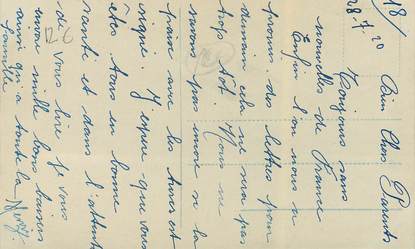 18/
28-7-20
Bien Chers Parents
Toujours sans
nouvelles de France
Enfin l'on nous a
promis des lettres pour
demain cela ne sera pas
trop tôt. Nous ne
savons pas encore si la
paix avec les turcs est
signée. J'espère que vous
êtes tous en bonne
santé et dans l'attente
de vous lire je vous
envoie mille bons baisers
ainsi qu'a toute la
famille